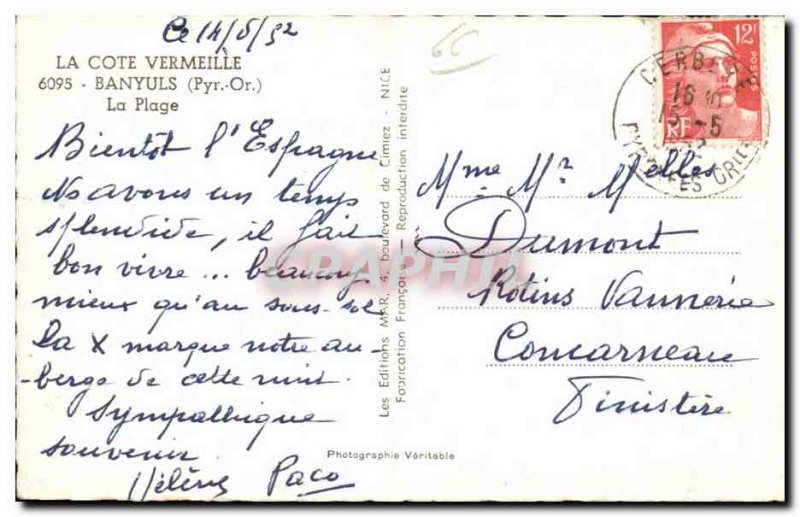 Ce 14/5/52
LA COTE VERMEILLE
6095 - BANYULS (Pyr.-Or.)
La Plage
Bientôt l'Espagne
Ns avons un temps
splendide, il fait
bon vivre... beaucoup
mieux qu'au sous-sol
La X marque notre au-
-berge de cette nuit.
Sympathique
souvenir
Hélène Paco
Les Editions MAR, 4, boulevard de Cimiez - NICE
Fabrication Française — Reproduction interdite
Photographie Véritable
66
12F
POSTES
RF
CERBERE
16
15-5
PYRENEES ORIENT
Mme Mr Melles
Dumont
Rotins Vannerie
Concarneau
Finistère